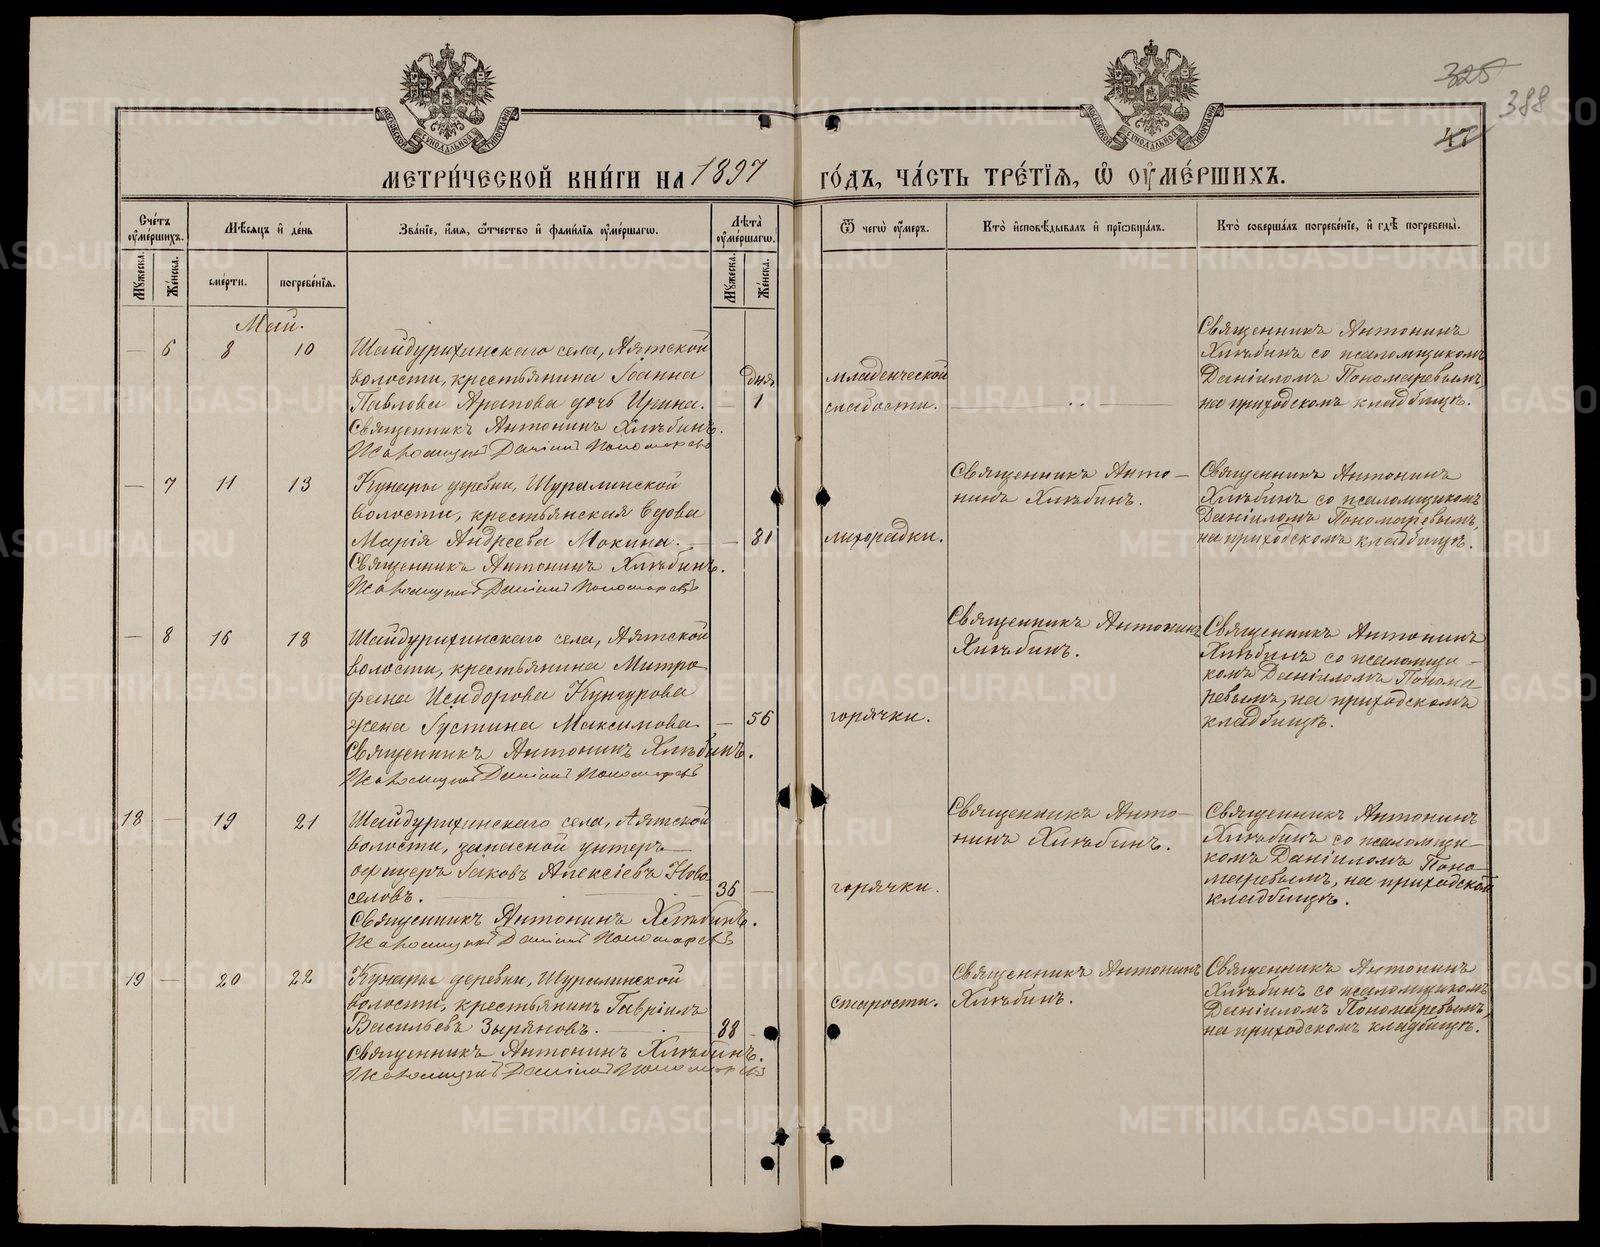 325
388
47
МЕТРИ́ЧЕСКОЙ КНИ́ГИ НА 1897 ГО́ДЪ, ЧА́СТЬ ТРЕ́ТІЯ, Ѿ ОУМЕ́РШИХЪ.
Сче́тъ оуме́ршихъ.
Мѣ́сяцъ и҆ де́нь
Зва́нїе, и҆́мя, ѻ҆́тчество и҆ фами́лїя оуме́ршагѡ.
Лѣ́та оуме́ршагѡ.
Ѿ чегѡ̀ оу́меръ.
Кто̀ и҆сповѣ́дывалъ и҆ прїѡбща́лъ.
Кто̀ соверша́лъ погребе́нїе, и҆ гдѣ̀ погребены̀.
Мꙋ́жеска.
Же́нска.
сме́рти.
погребе́нїя.
Мꙋ́жеска.
Же́нска.
Май.
— 6 8 10
Шайдурихинскаго села, Аятской
волости, крестьянина Іоанна
Павлова Арапова дочь Ирина. —
Священникъ Антонинъ Хлѣбинъ.
Псаломщикъ Даніилъ Пономаревъ
дня
1
младенческой
слабости.
Священникъ Антонинъ
Хлѣбинъ со псаломщикомъ
Даніиломъ Пономаревымъ,
на приходскомъ кладбищѣ.
— 7 11 13
Кунары деревни, Шуралинской
волости, крестьянская вдова
Марія Андреева Мокина. — — 81
Священникъ Антонинъ Хлѣбинъ.
Псаломщикъ Даніилъ Пономаревъ
лихорадки.
Священникъ Анто-
нинъ Хлѣбинъ.
Священникъ Антонинъ
Хлѣбинъ со псаломщикомъ
Даніиломъ Пономаревымъ,
на приходскомъ кладбищѣ.
— 8 16 18
Шайдурихинскаго села, Аятской
волости, крестьянина Митро
фана Исидорова Кунгурова
жена Іустина Максимова. — 56
Священникъ Антонинъ Хлѣбинъ.
Псаломщикъ Даніилъ Пономаревъ
горячки.
Священникъ Антонинъ
Хлѣбинъ.
Священникъ Антонинъ
Хлѣбинъ со псаломщи-
комъ Даніиломъ Понома
ревымъ, на приходскомъ
кладбищѣ.
18 — 19 21
Шайдурихинскаго села, Аятской
волости, запасной унтеръ-
офицеръ Іаковъ Алексіевъ Ново
селовъ. — 36 —
Священникъ Антонинъ Хлѣбинъ.
Псаломщикъ Даніилъ Пономаревъ
горячки.
Священникъ Анто-
нинъ Хлѣбинъ.
Священникъ Антонинъ
Хлѣбинъ со псаломщи-
комъ Даніиломъ Поно-
маревымъ, на приходском
кладбищѣ.
19 — 20 22
Кунары деревни, Шуралинской
волости, крестьянинъ Гавріилъ
Васильевъ Зыряновъ. — 88
Священникъ Антонинъ Хлѣбинъ.
Псаломщикъ Даніилъ Пономаревъ
старости.
Священникъ Антонинъ
Хлѣбинъ.
Священникъ Антонинъ
Хлѣбинъ со псаломщикомъ
Даніиломъ Пономаревымъ,
на приходскомъ кладбищѣ.
METRIKI.GASO-URAL.RU